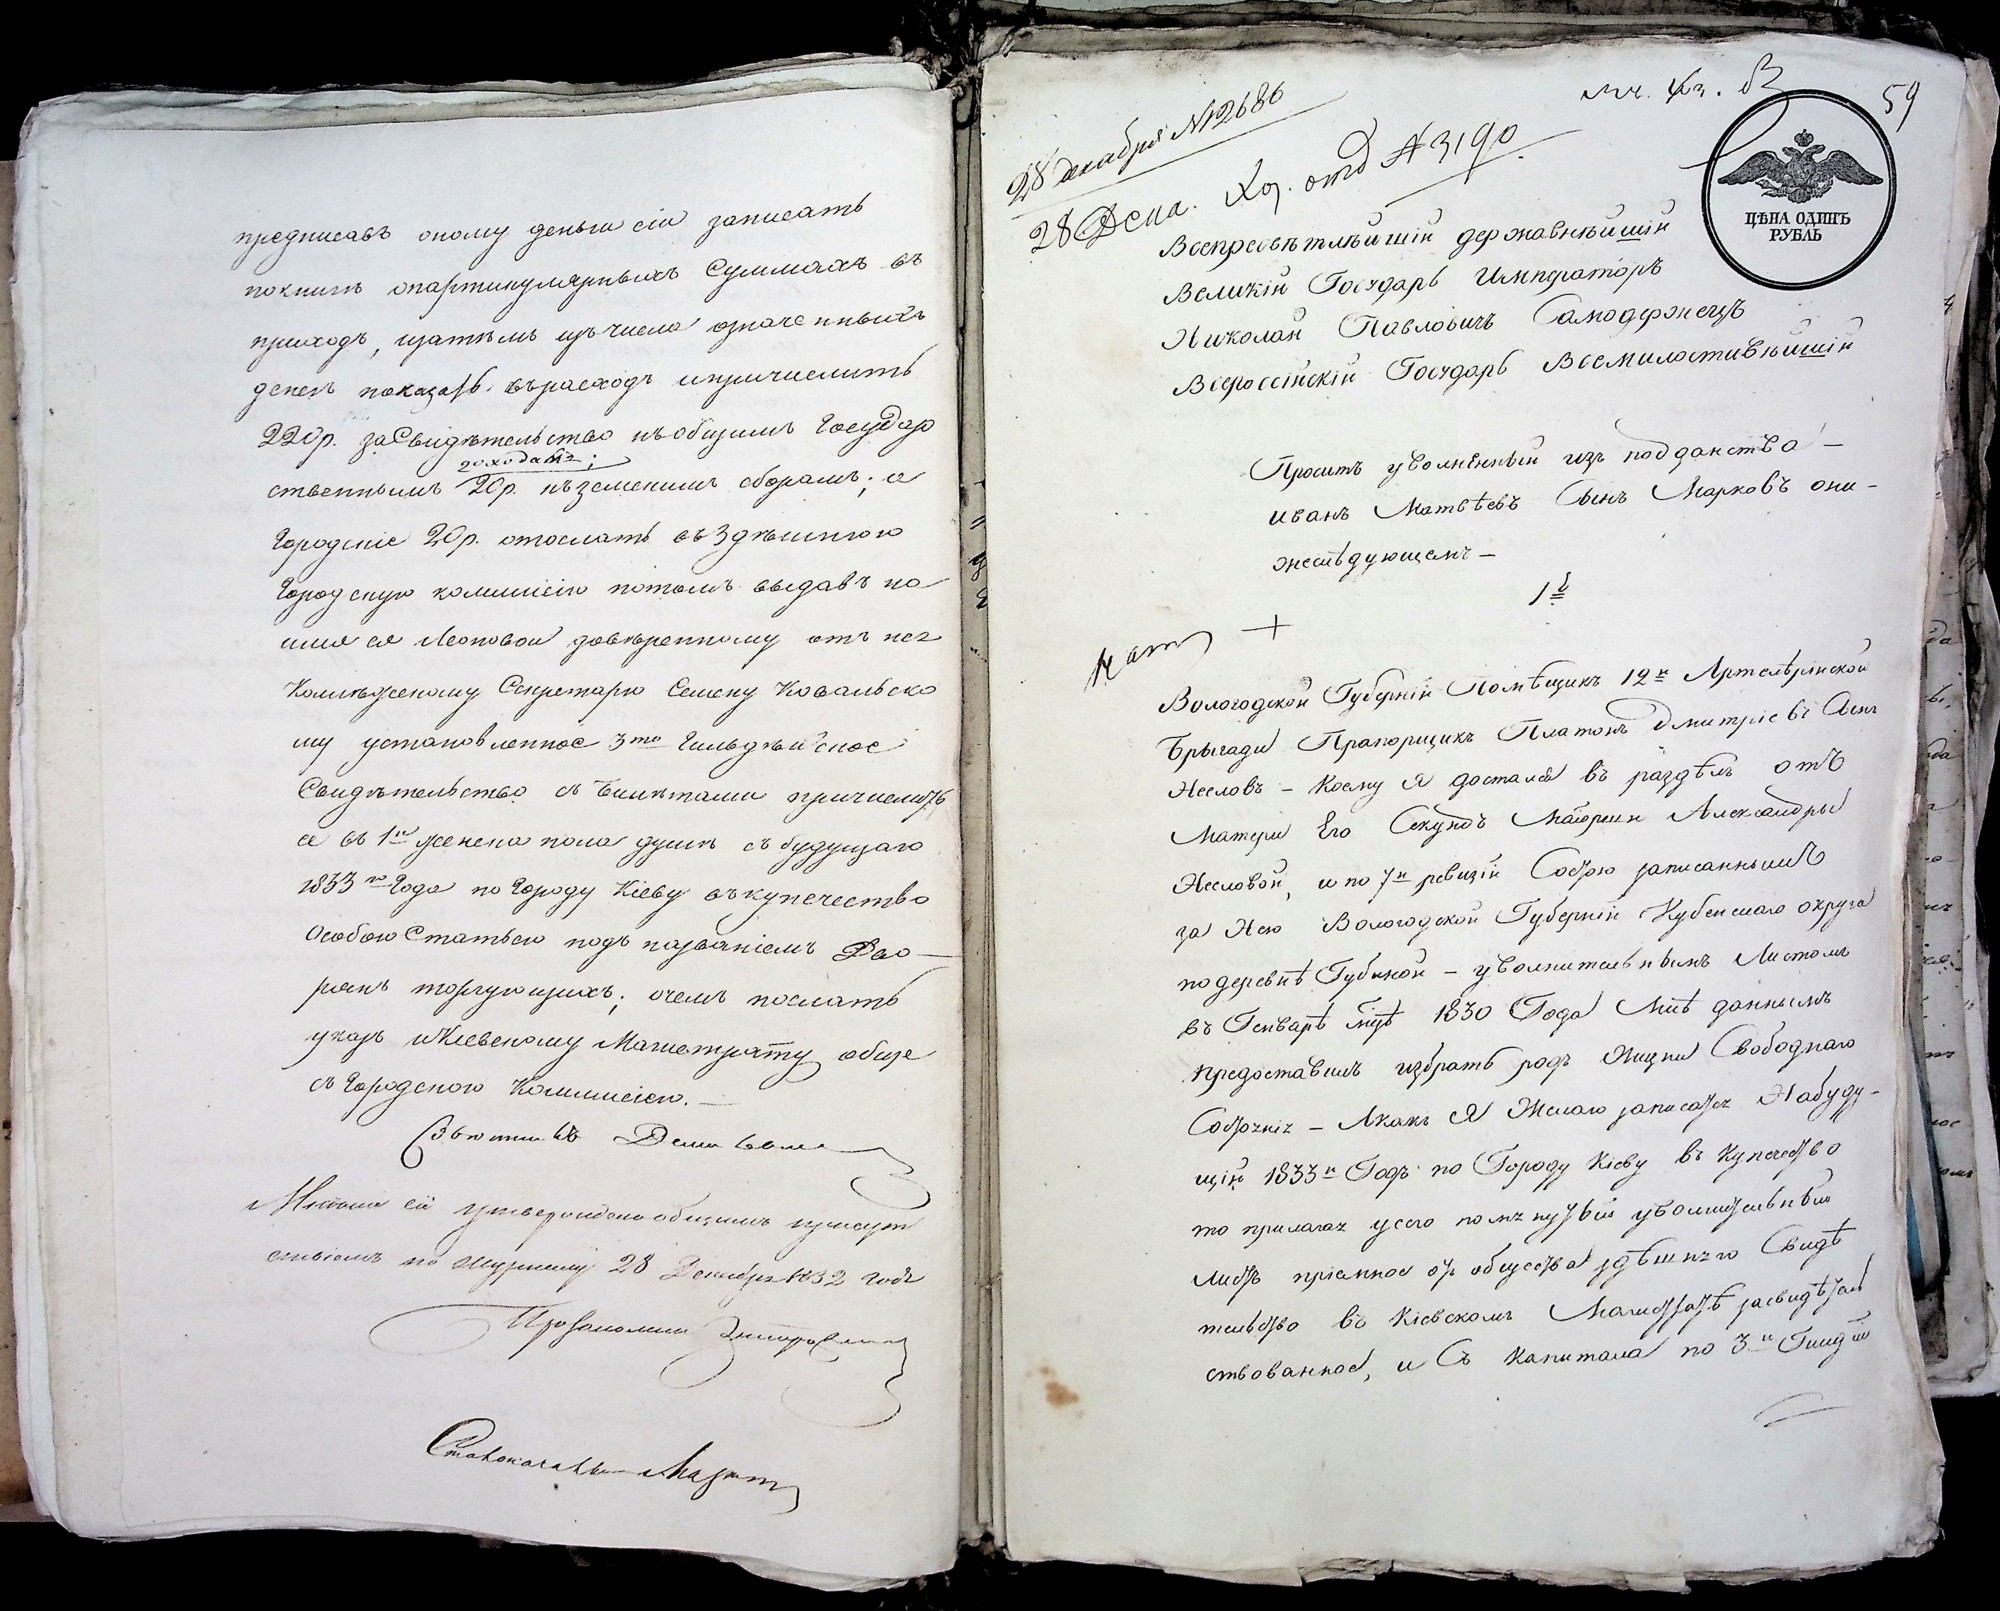 предписавъ оному деньги сіи записать
покнигѣ опартикулярныхъ Суммахъ въ
приходъ, изатѣмъ изъ числа означенныхъ
денегъ показать въ расходъ ипричислить
220р. за Свидѣтельство къ общимъ Государ
доходамъ;
ственнымъ 20р. къ земскимъ сборамъ; а
Городскіе 20р. отослать въ Здѣшнюю
Городскую коммисію потомъ выдавъ на
имя ея Леоновой довѣренному отъ нея
Коллежскому Секретарю Семену Ковальско
му установленное 3то Гильдейское
Свидѣтельство съ билетами причислить
ея въ 1й женска пола душѣ съ будущаго
1833го Года по Городу Кіеву въ купечество
Особою Статьею подъ названіемъ Дво—
рянъ торгующихъ; очемъ послать
указъ и Кіевскому Магистрату обще
съ Городскою Коммисіею.—
Совѣтникъ
сія утверждена общимъ присут
ствіемъ по журналу 28 Декабря 1832 года
59
28 декабря №12686
28 Дека. Хоз. отд №3190
ЦѢНА ОДИНЪ
РУБЛЬ
Всепресвѣтлѣйшій державнѣйшій
Великій Государь Императоръ
Николай Павловичъ Самодержецъ
Всероссійскій Государь Всемилостивѣйшій
Проситъ уволненный изъ подданства —
иванъ Матвѣевъ Сынъ Марковъ они-
жеслѣдующемъ —
1е
Вологодской Губерніи Помѣщикъ 12й Артелѣрійской
Брыгади Прапорщикъ Платонъ Дмитріевъ Сынъ
Нееловъ — коему я достался въ раздѣлъ отъ
Матери Его Секундъ Маіорши Александры
Нееловой, и по 7й ревизіи Состою записаннымъ
за Нею Вологодской Губерніи Кубенскаго округа
по деревнѣ Губиной — уволнительнымъ Листомъ
въ Генварѣ мцѣ 1830 Года Мнѣ даннымъ
предоставилъ избрать родъ Жизни Свободнаго
Состояніе — Акакъ Я Желаю записатся Набуду-
щій 1833й Годъ по Городу Кіеву въ купечество
то прилагая усего помянутый уволнительный
Листъ пріемное отъ общества здѣшняго Свидѣ
тельство въ Кіевскомъ Магистратѣ засвидѣтель
ствованное, и Съ капитала по 3й Гилдіи